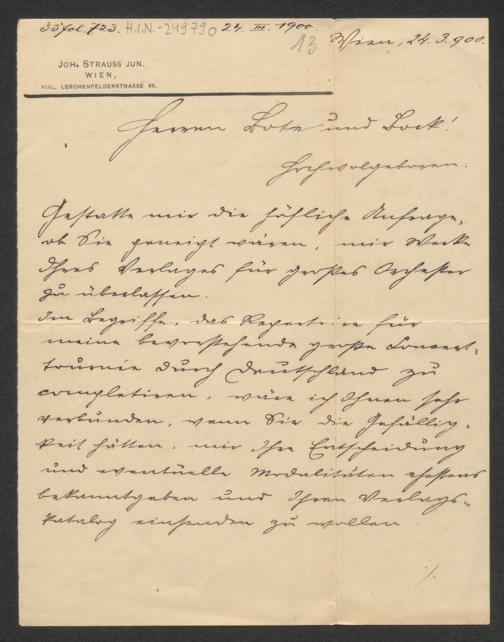 33fol.723. H.I.N.-249790 24. III. 1900.
13
Wien, 24.3.900.
JOH. STRAUSS JUN.
WIEN,
VIII., LERCHENFELDERSTRASSE
Herren Bote und Bock!
Hochwolgeboren.
Gestatte mir die höfliche Anfrage,
ob Sie geneigt wären, mir Werke
Ihres Verlages für großes Orchester
zu überlassen.
Im Begriffe, das Repertoire für
meine bevorstehende große Concert-
tournée durch Deutschland zu
completiren, wäre ich Ihnen sehr
verbunden, wenn Sie die Gefällig-
keit hätten, mir Ihre Entscheidung
und eventuelle Modalitäten ehestens
bekanntgeben und Ihren Verlags-
katalog einsenden zu wollen.
./.